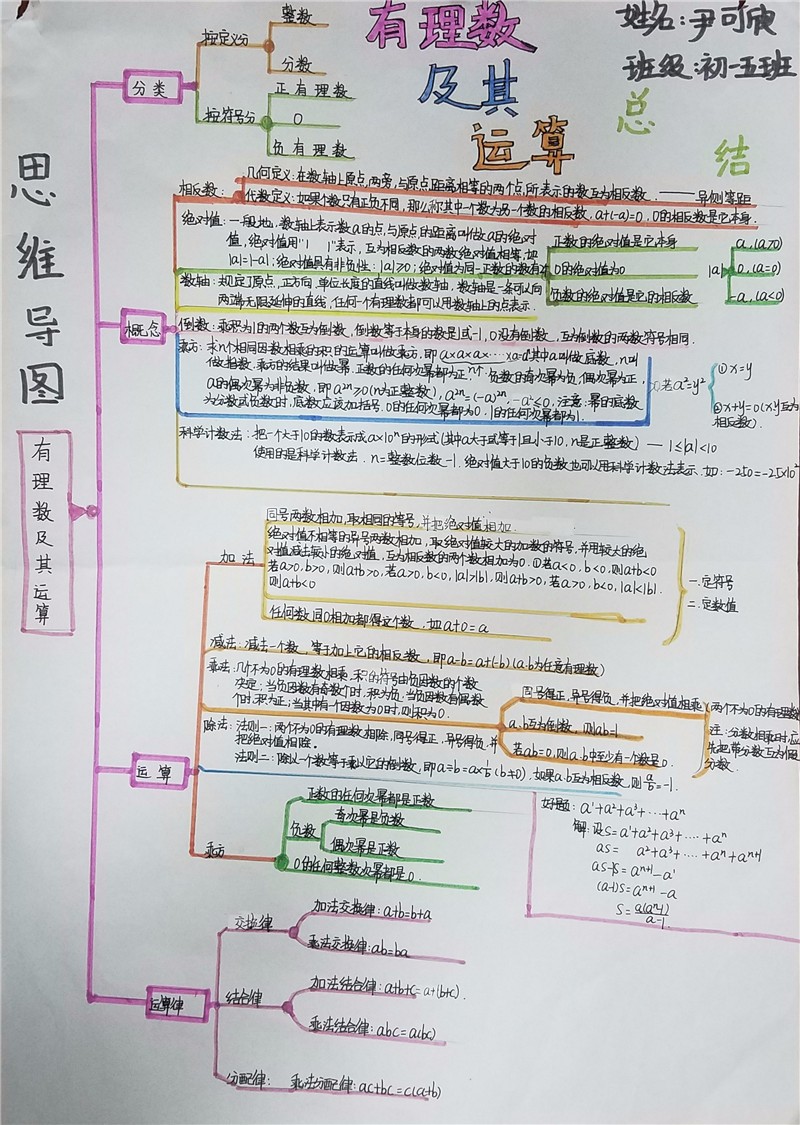 有理数
及其
运算
总
结
姓名:尹可欣
班级:初一五班
思维导图
有理数及其运算
分类
按定义分
整数
分数
按符号分
正有理数
0
负有理数
概念
相反数:
几何定义:在数轴上原点两旁,与原点距离相等的两个点,所表示的数互为相反数. —— 异侧等距
代数定义:如果个数只有正负不同,那么称其中一个数为另一个数的相反数, a+(-a)=0, 0的相反数是它本身.
绝对值:一般地,数轴上表示数a的点,与原点的距离叫做a的绝对
值,绝对值用"| |"表示,互为相反数的两数绝对值相等,如
|a|=|-a|;绝对值具有非负性:|a|≥0;绝对值为同一正数的数有
正数的绝对值是它本身
0的绝对值为0
负数的绝对值是它的相反数
|a|
a, (a>0)
0, (a=0)
-a, (a<0)
数轴:规定了原点,正方向,单位长度的直线叫做数轴,数轴是一条可以向
两端无限延伸的直线,任何一个有理数都可以用数轴上的点表示.
倒数:乘积为1的两个数互为倒数,倒数等于本身的数是1或-1,0没有倒数,互为倒数的两数符号相同.
乘方:求n个相同因数相乘的积的运算叫做乘方,即a×a×a×···×a=aⁿ其中a叫做底数,n叫
做指数.乘方的结果叫做幂.正数的任何次幂都为正,负数的奇次幂为负,偶次幂为正,
a的偶次幂为非负数,即a²ⁿ≥0(n为正整数), a²ⁿ=(-a)²ⁿ, -a²≤0,注意:幂的底数
为分数或负数时,底数应该加括号.0的任何次幂都为0,1的任何次幂都为1.
若x²=y²
①x=y
②x+y=0(x,y互为
相反数).
科学计数法:把一个大于10的数表示成a×10ⁿ的形式(其中a大于或等于1且小于10,n是正整数) — 1≤|a|<10
使用的是科学计数法. n=整数位数-1.绝对值大于10的负数也可以用科学计数法表示.如:-250=-2.5×10²
运算
加法
同号两数相加,取相同的等号,并把绝对值相加.
绝对值不相等的异号两数相加,取绝对值较大的加数的符号,并用较大的绝
对值减去较小的绝对值,互为相反数的两个数相加为0.①若a<0,b<0,则a+b<0
若a>0,b>0,则a+b>0,若a>0,b<0,|a|>|b|,则a+b>0,若a>0,b<0,|a|<|b|,
则a+b<0
任何数同0相加都得这个数,如a+0=a
一.定符号
二.定数值
减法:减去一个数,等于加上它的相反数,即a-b=a+(-b)(a.b为任意有理数)
乘法:几个不为0的有理数相乘,积的符号由负因数的个数
决定,当负因数有奇数个时,积为负,当负因数有偶数
个时,积为正;当其中有个因数为0时,则积为0.
同号得正,异号得负,并把绝对值相乘
a.b互为倒数,则ab=1
若ab=0,则a.b中至少有一个数是0.
(两个不为0的有理数
注:分数相乘时,应
先把带分数互为假
分数.
除法:法则一:两个不为0的有理数相除,同号得正,异号得负,并
把绝对值相除.
法则二:除以一个数等于乘以它的倒数,即a÷b=a×1/b(b≠0).如果a.b互为相反数,则a/b=-1.
乘方
正数的任何次幂都是正数
负数
奇次幂是负数
偶次幂是正数
0的任何整数次幂都是0.
好题: a¹+a²+a³+···+aⁿ
解:设S=a¹+a²+a³+····+aⁿ
aS= a²+a³+····+aⁿ+aⁿ⁺¹
aS-S=aⁿ⁺¹-a¹
(a-1)S=aⁿ⁺¹-a
S=a(aⁿ-1)/a-1
运算律
交换律
加法交换律:a+b=b+a
乘法交换律:ab=ba
结合律
加法结合律:a+b+c=a+(b+c).
乘法结合律:abc=a(bc)
分配律:
乘法分配律:ac+bc=c(a+b)